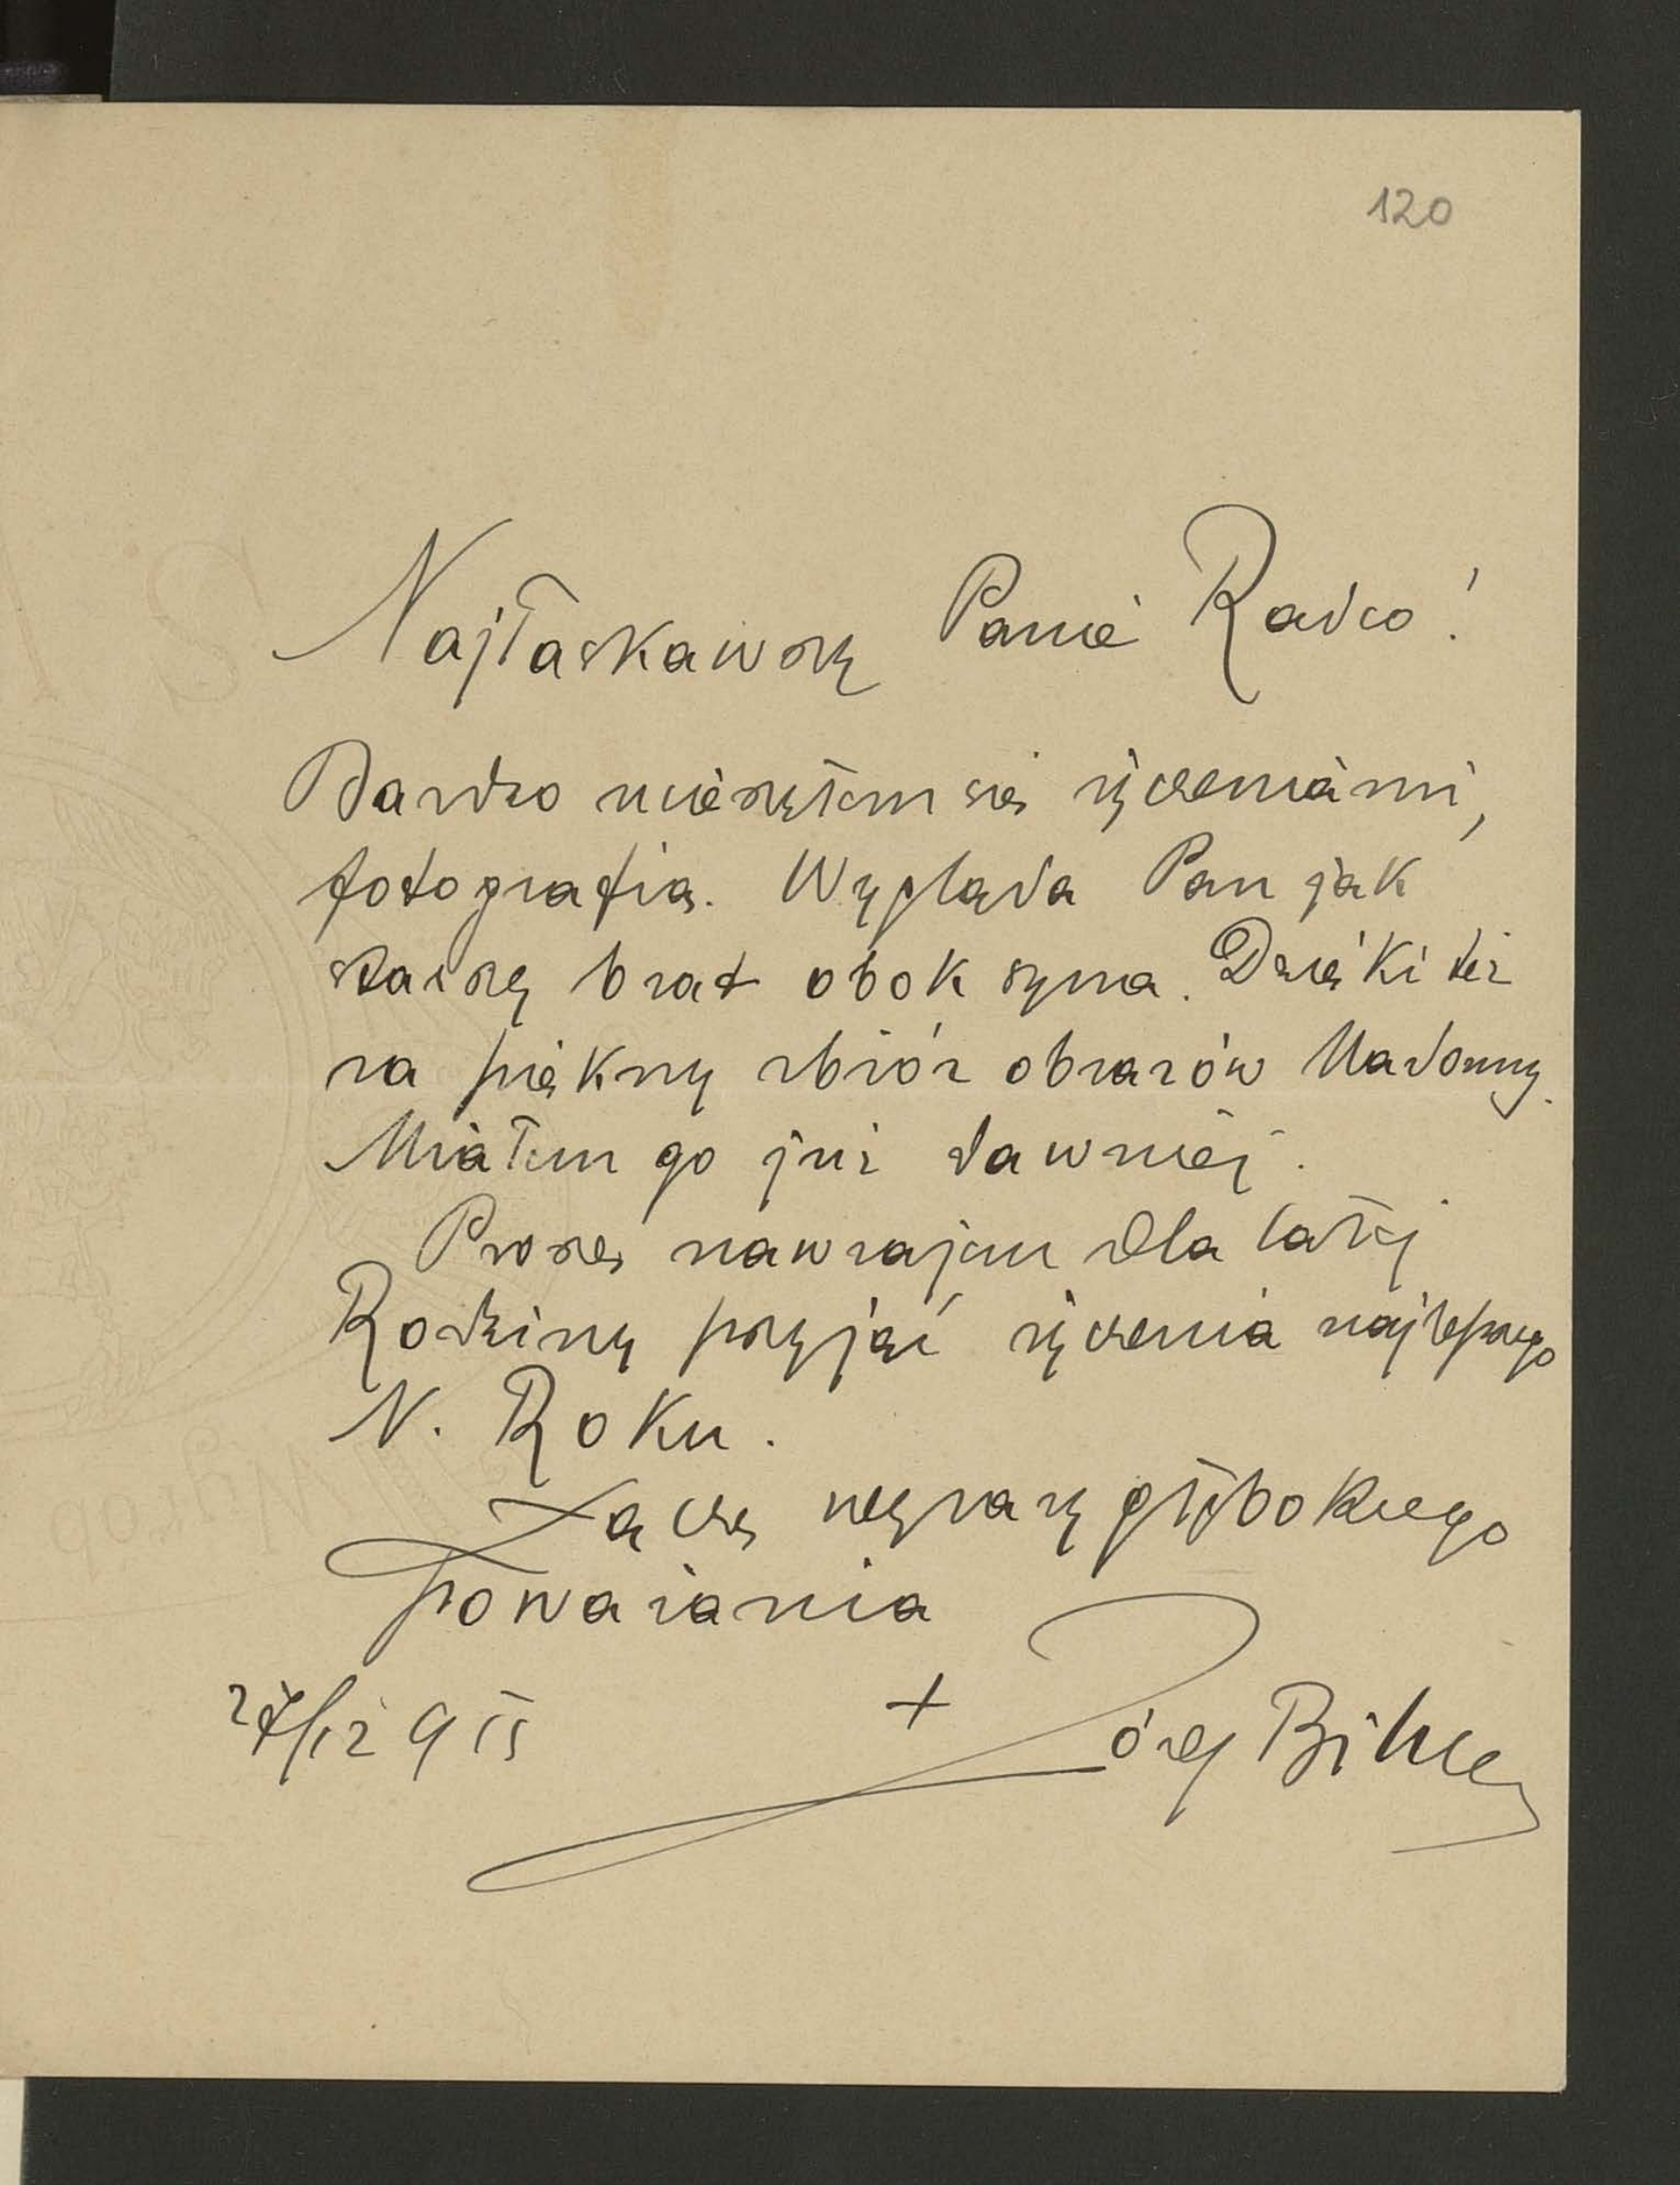 120
Najłaskawszy Panie Radco!
Bardzo ucieszyłem się życzeniami,
fotografią. Wygląda Pan jak
starszy brat obok syna. Dzięki też
za piękny zbiór obrazów Madonny.
Miałem go już dawniej.
Proszę nawzajem dla całej
Rodziny przyjąć życzenia najlepszego
N. Roku.
Łączę wyrazy głębokiego
poważania
27/12 915
+ Józef Bilczew